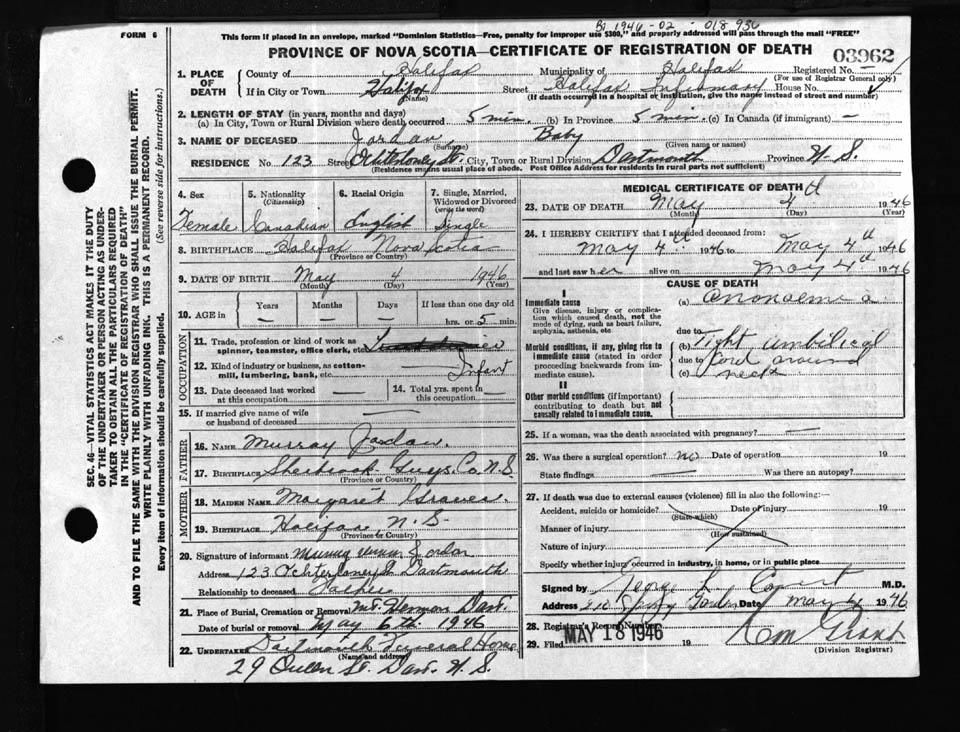 B 1946-02-018936
FORM 6
This form if placed in an envelope, marked "Dominion Statistics—Free, penalty for improper use $300," and properly addressed will pass through the mail "FREE"
PROVINCE OF NOVA SCOTIA—CERTIFICATE OF REGISTRATION OF DEATH
03962
1. PLACE OF DEATH
County of Halifax Municipality of Halifax Registered No. —
(For use of Registrar General only)
If in City or Town Halifax Street Halifax Infirmary House No.
(Name) (If death occurred in a hospital or institution, give the name instead of street and number)
2. LENGTH OF STAY (in years, months and days)
(a) In City, Town or Rural Division where death occurred 5 min. (b) In Province 5 min. (c) In Canada (if immigrant) —
3. NAME OF DECEASED Jordan Baby
(Surname) (Given name or names)
RESIDENCE No. 123 Street Ochterloney St. City, Town or Rural Division Dartmouth Province N.S.
(Residence means usual place of abode. Post Office Address for residents in rural parts not sufficient)
4. Sex
Female
5. Nationality
(Citizenship)
Canadian
6. Racial Origin
English
7. Single, Married, Widowed or Divorced
(write the word)
Single
8. BIRTHPLACE Halifax Nova Scotia
(Province or Country)
9. DATE OF BIRTH May 4 1946
(Month) (Day) (Year)
10. AGE
Years —
Months —
Days —
If less than one day old
hrs. or 5 min.
OCCUPATION
11. Trade, profession or kind of work as spinner, teamster, office clerk, etc.
12. Kind of industry or business, as cotton-mill, lumbering, bank, etc. Infant
13. Date deceased last worked at this occupation —
14. Total yrs. spent in this occupation —
15. If married give name of wife or husband of deceased —
FATHER
16. NAME Murray Jordan.
17. BIRTHPLACE Sherbrook Guys. Co. N.S.
(Province or Country)
MOTHER
18. MAIDEN NAME Margaret Graves.
19. BIRTHPLACE Halifax N.S.
(Province or Country)
20. Signature of informant Murray Jordan
Address 123 Ochterloney St Dartmouth
Relationship to deceased Father
21. Place of Burial, Cremation or Removal Mt. Hermon Dart.
Date of burial or removal May 6th 1946
22. UNDERTAKER Dartmouth Funeral Home
(Name and address)
29 Queen St. Dart. N.S.
MEDICAL CERTIFICATE OF DEATH
23. DATE OF DEATH May 4 1946
(Month) (Day) (Year)
24. I HEREBY CERTIFY that I attended deceased from:
May 4th 1946 to May 4th 1946
and last saw her alive on May 4th 1946
CAUSE OF DEATH
I
Immediate cause
Give disease, injury or complication which caused death, not the mode of dying, such as heart failure, asphyxia, asthenia, etc
(a)
due to
Morbid conditions, if any, giving rise to immediate cause (stated in order proceeding backwards from immediate cause).
(b) Tight umbilical
due to cord around
(c) neck
II
Other morbid conditions (if important) contributing to death but not causally related to immediate cause.
25. If a woman, was the death associated with pregnancy? —
26. Was there a surgical operation? no Date of operation 19
State findings — Was there an autopsy?
27. If death was due to external causes (violence) fill in also the following:—
Accident, suicide or homicide? Date of injury 19
(State which)
Manner of injury
(How sustained)
Nature of injury
Specify whether injury occurred in industry, in home, or in public place
Signed by George L. Covert M.D.
Address Date May 4 1946
28. Registrar's Record Number
29. Filed MAY 18 1946 19
(Division Registrar)
SEC. 46—VITAL STATISTICS ACT MAKES IT THE DUTY
OF THE UNDERTAKER OR PERSON ACTING AS UNDER-
TAKER TO OBTAIN ALL THE PARTICULARS REQUIRED
IN THE "CERTIFICATE OF REGISTRATION OF DEATH"
AND TO FILE THE SAME WITH THE DIVISION REGISTRAR WHO SHALL ISSUE THE BURIAL PERMIT.
WRITE PLAINLY WITH UNFADING INK. THIS IS A PERMANENT RECORD.
Every item of information should be carefully supplied. (See reverse side for instructions.)